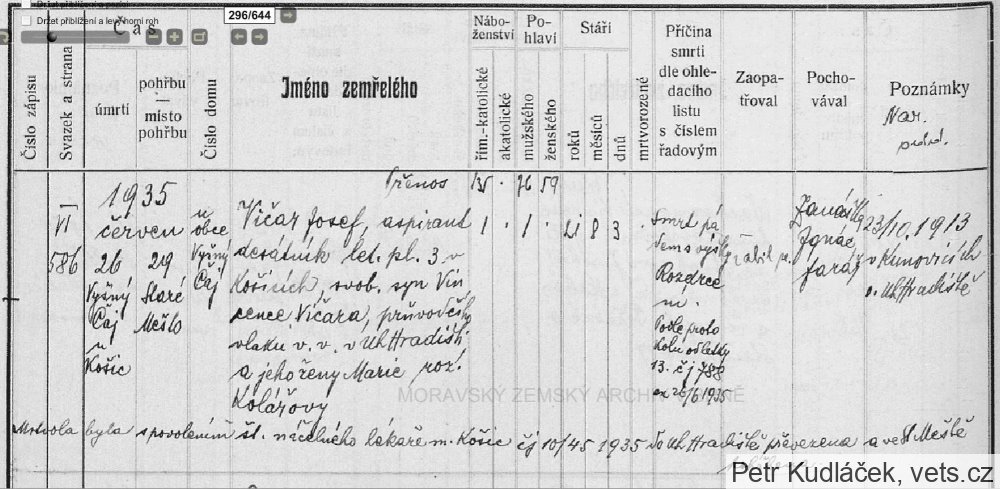 Držet přiblížení a levý horní roh
296/644
Číslo zápisu
Svazek a strana
Čas
úmrtí
pohřbu
—
místo
pohřbu
Číslo domu
Jméno zemřelého
Nábo-
ženství
řím.-katolické
akatolické
Po-
hlaví
mužského
ženského
Stáří
roků
měsíců
dnů
mrtvorozené
Příčina
smrti
dle ohle-
dacího
listu
s číslem
řadovým
Zaopa-
třoval
Pocho-
vával
Poznámky
Nar.
Přenos 135 . 76 59
1935
VI
586
červen
26 29
Vyšný
Čaj
u
Košic
Staré
Město
u
obce
Vyšný
Čaj
Vičar Josef, aspirant
desátník let. pl. 3 v
Košicích, svob. syn Vin
cence Vičara, průvodčího
vlaku v. v. v Uh Hradišti
a jeho ženy Marie roz.
Kolářovy
1 . 1 . 21 8 3 .
Smrt
Rozdrce
Podle proto
kolu
13. čj 788
ex 26/6 1935
Ignác
farář
23/10. 1913
v Kunovicích
u Uh Hradiště
Mrtvola byla s povolením št. lékaře m. Košic čj 10/45 1935 do Uh Hradiště převezena a ve St Městě
MORAVSKÝ ZEMSKÝ ARCHIV V BRNĚ
Petr Kudláček, vets.cz